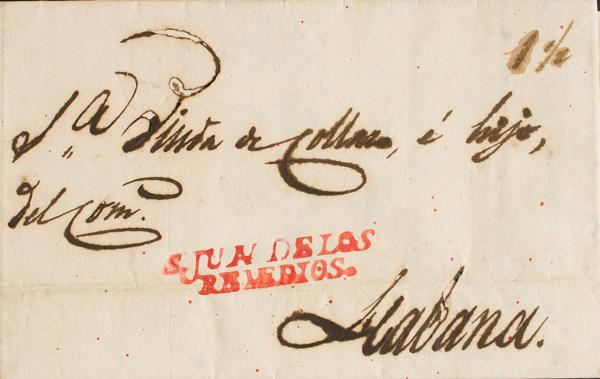 1½
S.ª Viuda de Collazo, é hijo,
del Com.
S JUN DE LOS
REMEDIOS.
Habana.